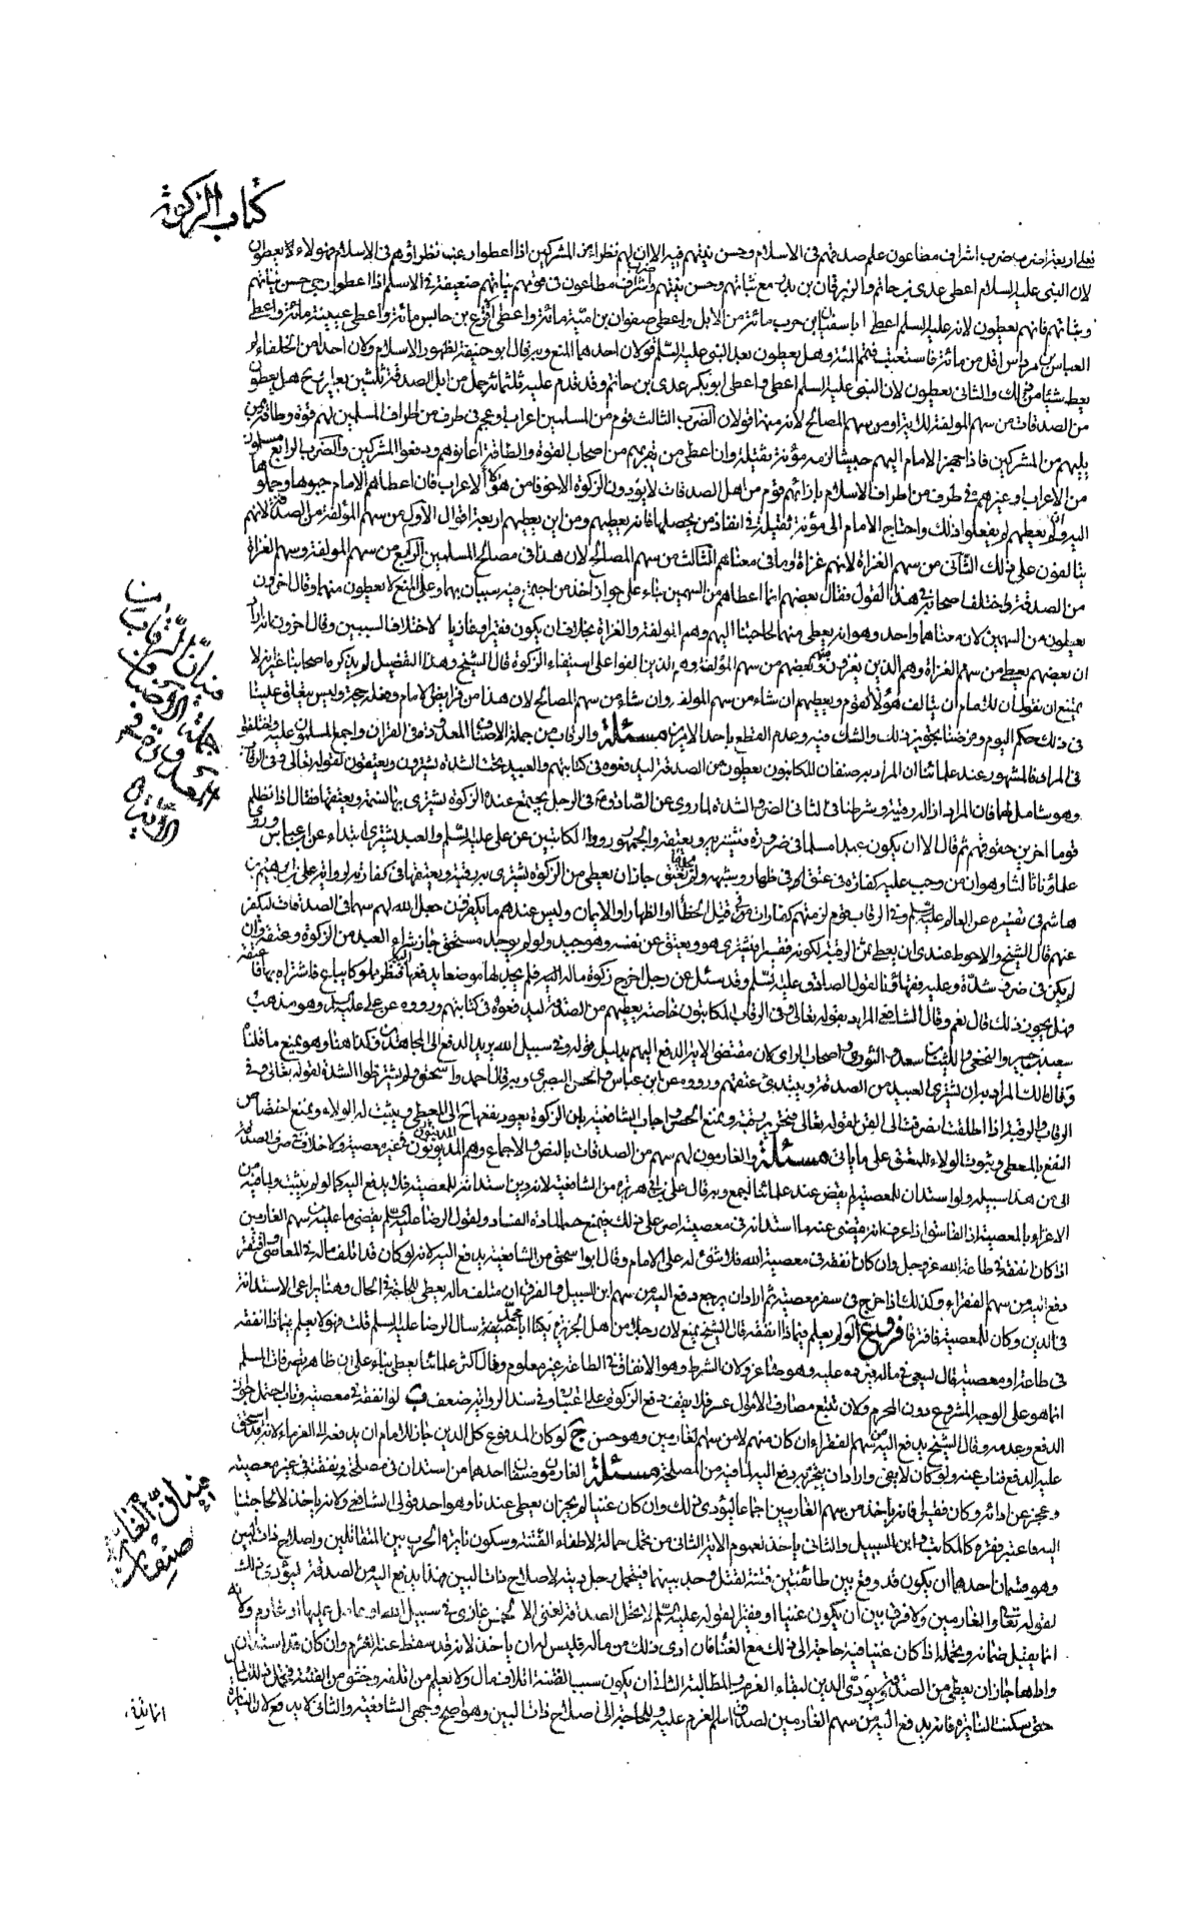 كتاب الزكوة
على اربعة اضرب ضرب اشراف مطاعون علم صدقهم فى الاسلام وحسن نيتهم فيه الا ان لهم نظراء من المشركين اذا اعطوا رغب نظراؤهم فى الاسلام فهولاء لا يعطون
لان النبى عليه السلام اعطى عدى بن حاتم والزبرقان بن بدر مع ثباتهم وحسن نيتهم وضرب اشراف مطاعون فى قومهم نياتهم ضعيفة فى الاسلام اذا اعطوا رجى حسن نياتهم
وثباتهم فانهم يعطون لانه عليه السلم اعطى ابا سفين ابن حرب مائة من الابل واعطى صفوان بن امية مائة واعطى اقرع بن حابس مائة واعطى عيينة مائة واعطى
العباس بن مرداس اقل من مائة فاستعتب فتمم المئة وهل يعطون بعد النبى عليه السلم قولان احدهما المنع وبه قال ابو حنيفة لظهور الاسلام ولان احدا من الخلفاء لم
يعط شيئا من ذلك والثانى يعطون لان النبى عليه السلم اعطى واعطى ابو بكر عدى بن حاتم وقد قدم عليه ثلثمائة جمل من ابل الصدقة ثلثين بعيرا هل يعطون
من الصدقات من سهم المولفة لذلك او من سهم المصالح لانه منها قولان الضرب الثالث قوم من المسلمين اعراب او عجم فى طرف من اطراف المسلمين لهم قوة وطاقة بمن
يليهم من المشركين فاذا جهز الامام اليهم جيشا لزمه مؤنة ثقيلة وان اعطى من بقربهم من اصحاب القوة والطاقة اعانوهم ودفعوا المشركين والضرب الرابع مسلمون
من الاعراب او غيرهم فى طرف من اطراف الاسلام بازائهم قوم من اهل الصدقات لا يؤدون الزكوة الا خوفا من هؤلاء الاعراب فان اعطاهم الامام جبوها وحملوها
اليه وان لم يعطهم لم يفعلوا ذلك واحتاج الامام الى مؤنة ثقيلة فى انفاذ من يحصلها فانه يعطيهم ومن اين يعطيهم اربعة اقوال الاول من سهم المؤلفة من الصدقة لانهم
يتالفون على ذلك الثانى من سهم الغزاة لانهم غزاة او فى معناهم الثالث من سهم المصالح لان هذا فى مصالح المسلمين الرابع من سهم المولفة وسهم الغزاة
من الصدقة واختلف اصحابه فى هذا القول فقال بعضهم انما اعطاهم من السهمين بناء على جواز اخذ من اجتمع فيه سببان بهما وعلى المنع لا يعطون منهما وقال اخرون
يعطون من السهمين لان معناهما واحد وهو انه يعطى منهما لحاجتنا اليهم وهم المولفة والغزاة بخلاف ان يكون فقيرا وغازيا لاختلاف السببين وقال اخرون اراد
ان بعضهم يعطى من سهم الغزاة وهم الذين يغزون وبعضهم من سهم المؤلفة وهم الذين الفوا على استيفاء الزكوة قال الشيخ وهذا التفصيل لم يذكره اصحابنا غير انه لا
يمتنع ان نقول ان للامام ان يتالف هؤلاء القوم ويعطيهم ان شاء من سهم المولفة وان شاء من سهم المصالح لان هذا من فرايض الامام وفعله حجة وليس يتعلق علينا
فى ذلك حكم اليوم وفرضنا تجويز ذلك والشك فيه وعدم القطع باحد الامرين مسئلة والرقاب من جملة الاصناف المعدودة فى القران واجمع المسلمون عليه واختلفوا
فى المراد فالمشهور عند علمائنا ان المراد به صنفان المكاتبون يعطون من الصدقة ليدفعوه فى كتابتهم والعبيد تحت الشدة يشترون ويعتقون لقوله تعالى وفى الرقاب
وهو شامل لهما فان المراد ازالة رقيته وشرطنا فى الثانى الضر والشدة لما روى عن الصادق فى الرجل يجتمع عنده الزكوة يشترى بها نسمة ويعتقها فقال اذا تظلم
قوما اخرين حقوقهم ثم قال الا ان يكون عبدا مسلما فى ضرورة فيشتريه ويعتقه والجمهور رووا المكاتبين عن على عليه السلم والعبد يشترى ابتداء عن ابن عباس وروى
علماؤنا ثالثا وهو ان من وجب عليه كفارة فى عتق او فى ظهار وشبهه ولم يجد ما يعتق جاز ان يعطى من الزكوة يشترى به رقبة ويعتقها فى كفارته لرواية على بن ابرهيم بن
هاشم فى تفسيره عن العالم عليه السلم وفى الرقاب قوم لزمتهم كفارات فى قتل الخطأ او الظهار او الايمان وليس عندهم ما يكفرون جعل الله لهم سهما فى الصدقات ليكفر
عنهم قال الشيخ والاحوط عندى ان يعطى ثمن الرقبة لكونه فقيرا فيشترى هو ويعتق عن نفسه وهو جيد ولو لم يوجد مستحق جاز شراء العبد من الزكوة وعتقه وان
لم يكن فى ضر وشدة وعليه فقهاؤنا لقول الصادق عليه السلم وقد سئل عن رجل اخرج زكوة ماله اليه فلم يجد لها موضعا يدفعها اليه فنظر مملوكا يباع فاشتراه بها فاعتقه
فهل يجوز ذلك قال نعم وقال الشافعى المراد بقوله تعالى وفى الرقاب المكاتبون خاصة يعطيهم من الصدقة ليدفعوه فى كتابتهم ورووه عن على عليه السلم وهو مذهب
سعيد بن جبير والنخعى والليث بن سعد والثورى واصحاب الراى لان مقتضى الاية الدفع اليهم بدليل قوله وفى سبيل الله يريد الدفع الى المجاهدين فكذا هنا وهو يمنع ما قلناه
وقال مالك المراد به ان يشترى العبيد من الصدقة ويبتدئ عتقهم ورووه عن ابن عباس والحسن البصرى وبه قال احمد واسحق ولم يشترطوا الشدة لقوله تعالى وفى
الرقاب والرقبة اذا اطلقت انصرفت الى القن لقوله تعالى فتحرير رقبة ويمنع الحصر
النفع بالمعطى وثبوت الولاء للمعتق على ما ياتى مسئلة والغارمون لهم سهم من الصدقات بالنص والاجماع وهم المديونون فى غير معصية ولا خلاف فى صرف الصدقة
الى من هذا سبيله ولو استدان للمعصية لم يقض عند علمائنا اجمع وبه قال على بن ابى هريرة من الشافعية لانه دين استدانه للمعصية فلا يدفع اليه كما لو لم يتب ولما فيه من
الاغراء بالمعصية اذ الفاسق اذا عرف انه يقضى عنه ما استدانه فى معصية اصر على ذلك فيمنع حسما لمادة الفساد ولقول الرضا عليه السلم يقضى ما عليه من سهم الغارمين
اذا كان انفقه فى طاعة الله عز وجل وان كان انفقه فى معصية الله فلا شئ له على الامام وقال ابو اسحق من الشافعية يدفع اليه لانه لو كان قد اتلف ماله فى المعاصى وافتقر
دفع اليه من سهم الفقراء وكذلك اذا خرج فى سفر معصية ثم اراد ان يرجع دفع اليه من سهم ابن السبيل والفرق ان متلف ماله يعطى للحاجة فى الحال وهنا يراعى الاستدانة
فى الدين وكان للمعصية فافترقا فروع ا لو لم يعلم فيما ذا انفقه قال الشيخ يمنع لان رجلا من اهل الجزيرة يكنا ابا محمد سال الرضا عليه السلم قلت فهو لا يعلم فيما ذا انفقه
فى طاعة او معصية قال يسعى فى ماله فيرده عليه وهو صاغر ولان الشرط وهو الانفاق فى الطاعة غير معلوم وقال اكثر علمائنا يعطى بناء على ان ظاهر تصرفات المسلم
انما هو على الوجه المشروع دون المحرم ولان تتبع مصارف الاموال عسر فلا يقف دفع الزكوة على اعتباره وفى سند الرواية ضعف ب لو انفقه فى معصية وتاب احتمل جواز
الدفع وعدمه وقال الشيخ يدفع اليه من سهم الفقراء ان كان منهم لا من سهم الغارمين وهو حسن ج لو كان المدفوع كل الدين جاز للامام ان يدفعه الى الغرماء لانه قد استحق
عليه الدفع فناب عنه ولو كان لا يفى واراد ان يتجر به دفع اليه لما فيه من المصلحة مسئلة الغارمون صنفان احدهما من استدان فى مصلحة ونفقة فى غير معصية
وعجز عن ادائه وكان فقيرا فانه ياخذ من سهم الغارمين اجماعا ليؤدى ذلك وان كان غنيا لم يجز ان يعطى عندنا وهو احد قولى الشافعى ولانه ياخذ لا لحاجتنا
اليه فاعتبر فقره كالمكاتب وابن السبيل والثانى ياخذ لعموم الاية الثانى من تحمل حمالة لاطفاء الفتنة وسكون نايرة الحرب بين المتقاتلين واصلاح ذات البين
وهو قسمان احدهما ان يكون قد وقع بين طائفتين فتنة لقتل وجد بينهما فيتحمل رجل ديته لاصلاح ذات البين فهذا يدفع اليه من الصدقة ليؤدى ذلك
لقوله تعالى والغارمين ولا فرق بين ان يكون غنيا او فقيرا لقوله عليه السلم لا تحل الصدقة لغنى الا لخمس غازى فى سبيل الله او عامل عليها او غارم ولانه
انما يقبل ضمانه وتحمله اذا كان غنيا فبه حاجة الى ذلك مع الغنا فان ادى ذلك من ماله فليس له ان ياخذ لانه قد سقط عنه الغرم وان كان قد استدان
واداها جاز ان يعطى من الصدقة ويؤدى الدين لبقاء الغرم والمطالبة الثانى ان يكون سبب الفتنة اتلاف مال ولا يعلم من اتلفه وخشى من الفتنة فتحمل ذلك المال
حتى سكنت النايرة فانه يدفع اليه من سهم الغارمين لصدق اسم الغرم عليه وللحاجة الى اصلاح ذات البين وهو اصح وجهى الشافعية والثانى لا يدفع لان النايرة
فى بيان ان الرقاب من
جملة الاصناف
المعدودة فى
الاية
فى بيان ان الغارمين
صنفان